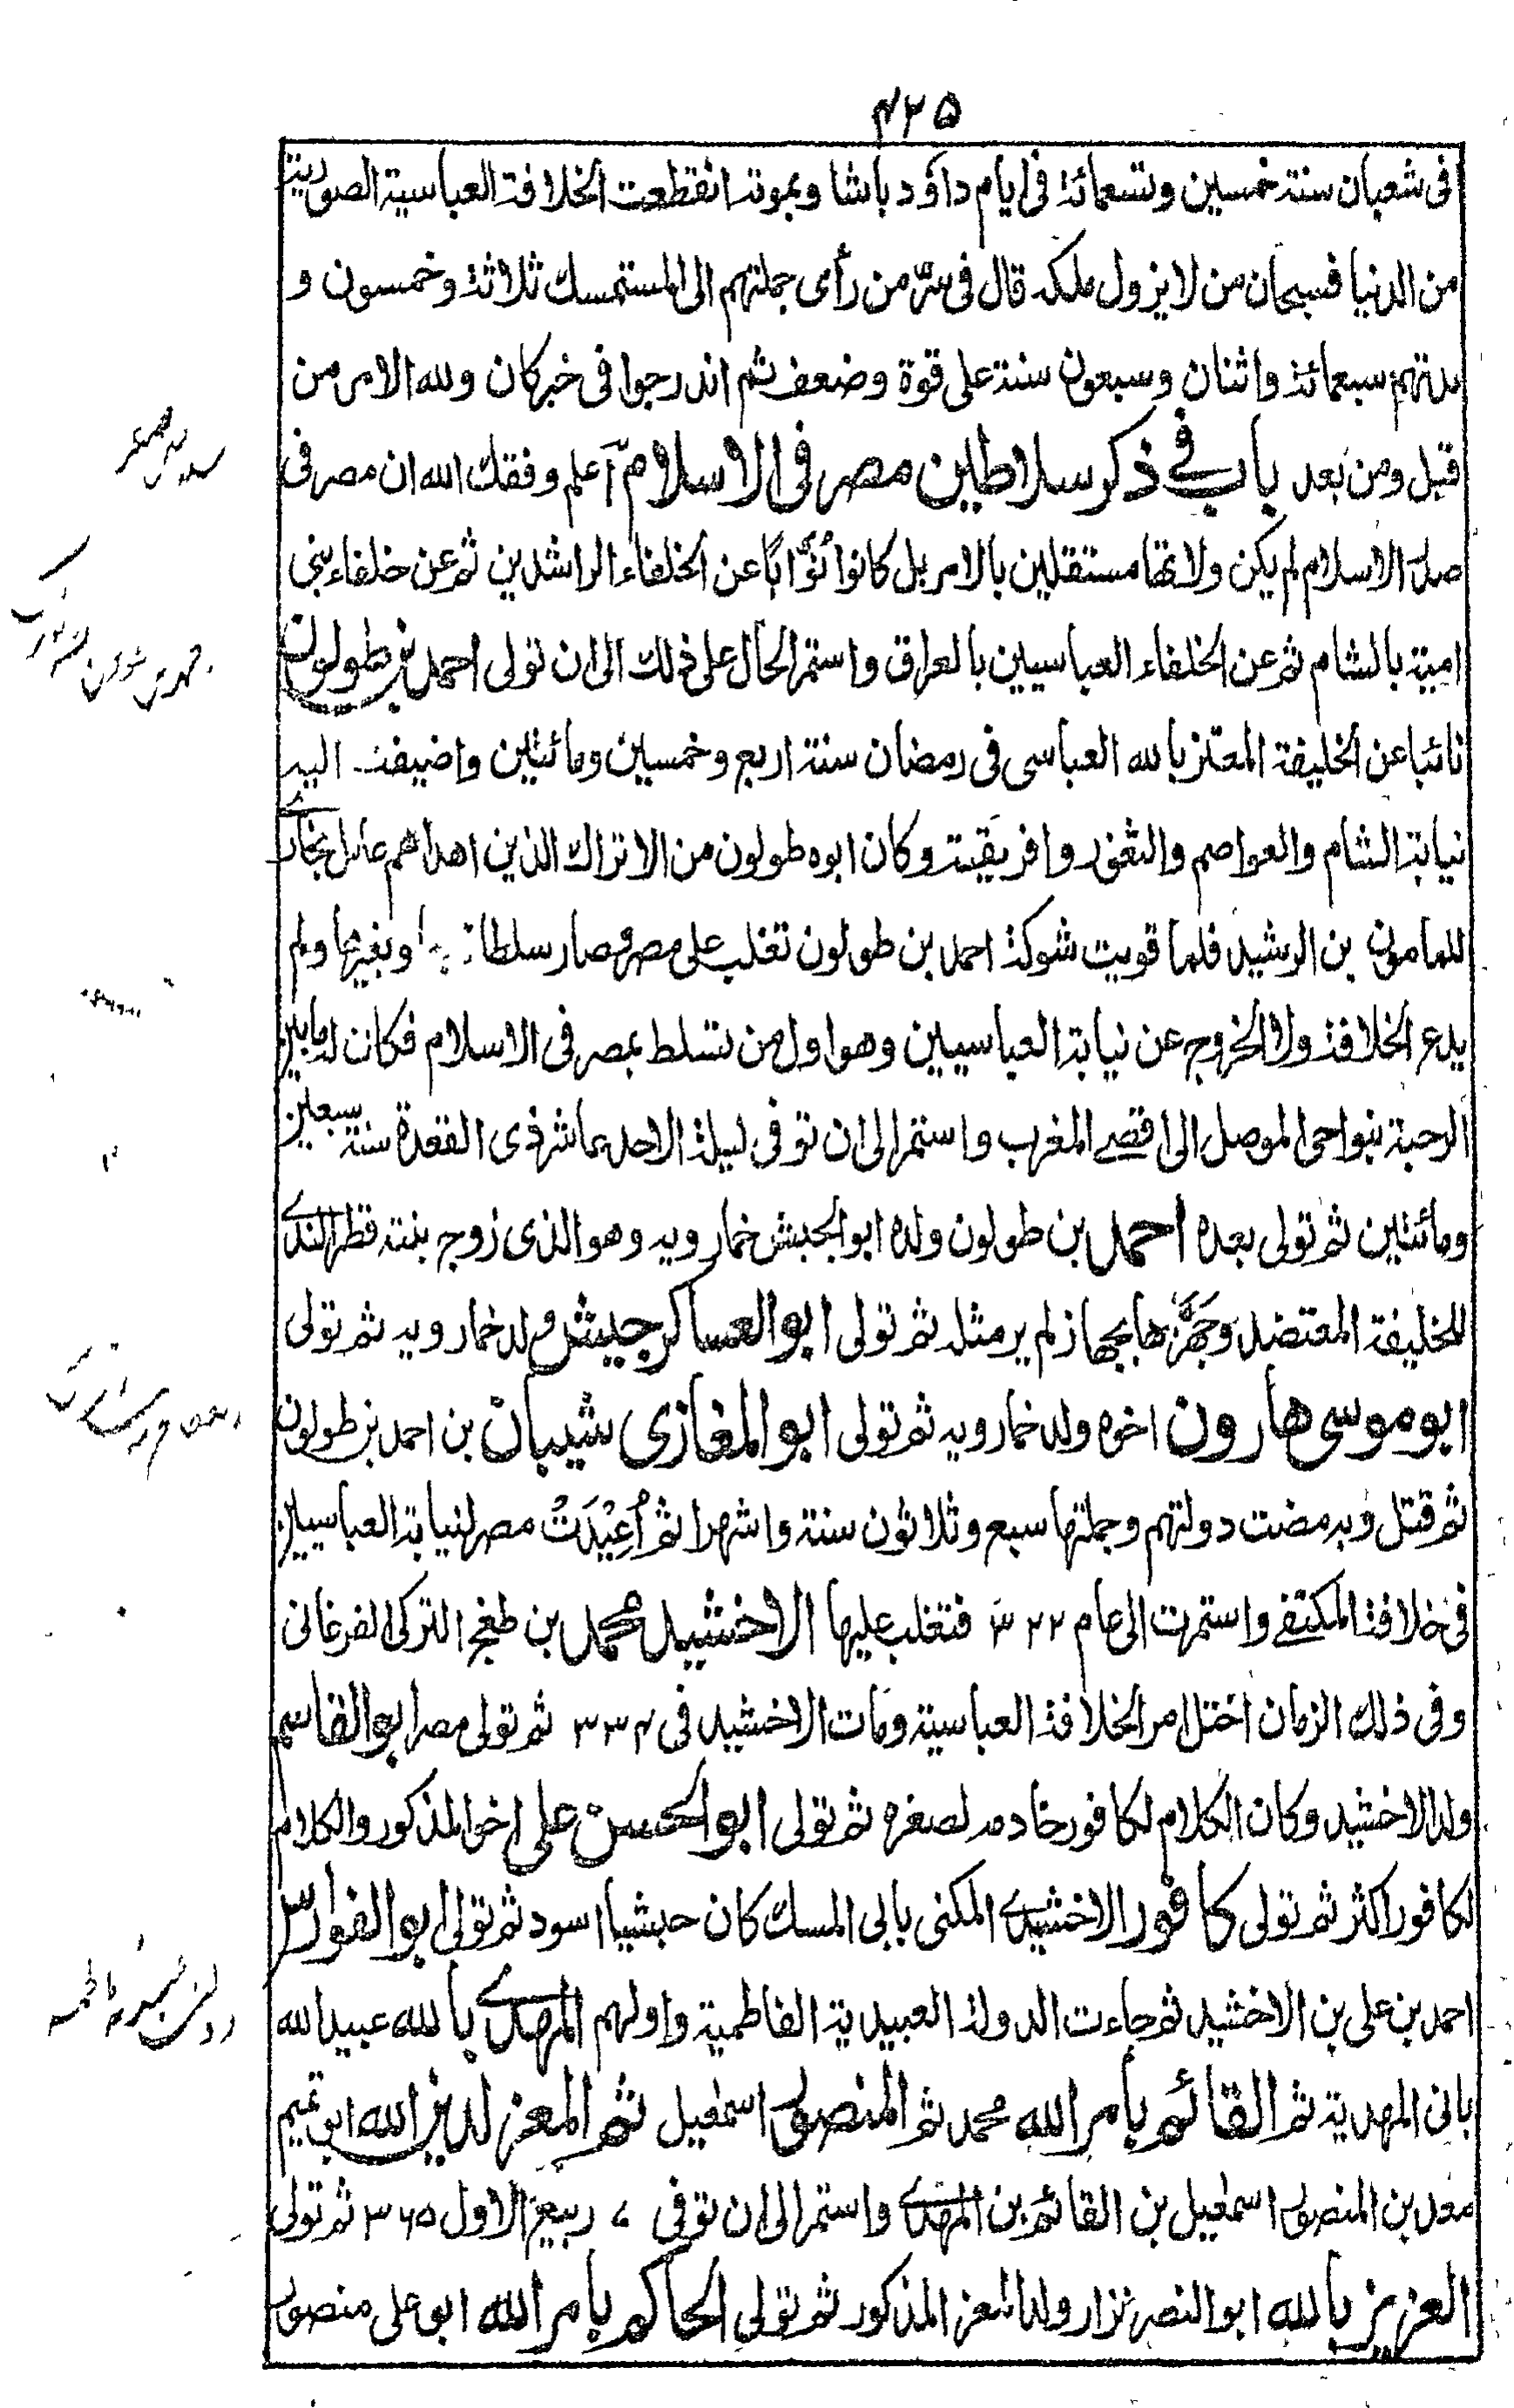 ۴۲۵
فى شعبان سنة خمسين وتسعمائة فى ايام داؤد باشا وبموته انقطعت الخلافة العباسية الصورية
من الدنيا فسبحان من لا يزول ملكه قال فى سرّ من رأى جملتهم الى المستمسك ثلاثة وخمسون و
مدتهم سبعمائة واثنان وسبعون سنة على قوة وضعف ثم اندرجوا فى خبر كان ولله الامر من
قبل ومن بعد باب فى ذكر سلاطين مصر فى الاسلام اعلم وفقك الله ان مصر فى
صدر الاسلام لم يكن ولاتها مستقلين بالامر بل كانوا نُوَّابًا عن الخلفاء الراشدين ثم عن خلفاء بنى
امية بالشام ثم عن الخلفاء العباسيين بالعراق واستمر الحال على ذلك الى ان تولى احمد بن طولون
نائبا عن الخليفة المعتز بالله العباسى فى رمضان سنة اربع وخمسين ومائتين واضيفت اليه
نيابة الشام والعواصم والثغور وافريقية وكان ابوه طولون من الاتراك الذين اهداهم عامل بخارے
للمامون بن الرشيد فلما قويت شوكة احمد بن طولون تغلب على مصر وصار سلطانا بها وبغيرها ولم
يدع الخلافة ولا الخروج عن نيابة العباسيين وهو اول من تسلط بمصر فى الاسلام فكان له ما بين
الرحبة بنواحى الموصل الى اقصے المغرب واستمر الى ان توفى ليلة الاحد عاشر ذى القعدة سنة سبعين
ومائتين ثم تولى بعده احمد بن طولون ولده ابو الجيش خمارويه وهو الذى زوج بنته قطر الندے
للخليفة المعتضد وجَهَّزها بجهاز لم ير مثله ثم تولى ابو العساكر جيش ولد خمارويه ثم تولى
ابو موسى هارون اخوه ولد خمارويه ثم تولى ابو المغازى شيبان بن احمد بن طولون
ثم قتل وبه مضت دولتهم وجملتها سبع وثلاثون سنة واشهرا ثم اُعِيْدَتْ مصر لنيابة العباسيين
فى خلافة المكتفے واستمرت الى عام ۳۲۲ فتغلب عليها الاخشيد محمد بن طغج التركى الفرغانى
وفى ذلك الزمان اختل امر الخلافة العباسية ومات الاخشيد فى ۳۳۴ ثم تولى مصر ابو القاسم
ولد الاخشيد وكان الكلام لكافور خادمه لصغره ثم تولى ابو الحسن على اخو المذكور والكلام
لكافور اكثر ثم تولى كافور الاخشيدے المكنى بابى المسك كان حبشيا اسود ثم تولى ابو الفوارس
احمد بن على بن الاخشيد ثم جاءت الدولة العبيدية الفاطمية واولهم المهدے بالله عبيد الله
بانى المهدية ثم القائم بامر الله محمد ثم المنصور اسمٰعيل ثم المعز لدين الله ابو تميم
معد بن المنصور اسمٰعيل بن القائم بن المهدے واستمر الى ان توفى ربيع الاول ۳۶۵ ثم تولى
العزيز بالله ابو النصر نزار ولد المعز المذكور ثم تولى الحاكم بامر الله ابو على منصور